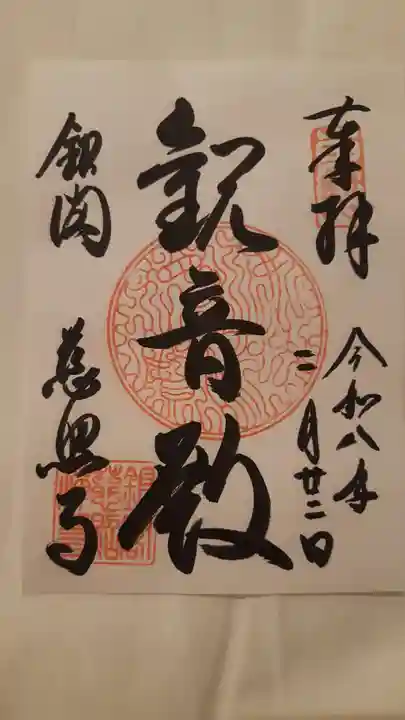 奉拝
令和八年
二月廿二日
観音殿
銀閣
慈照寺